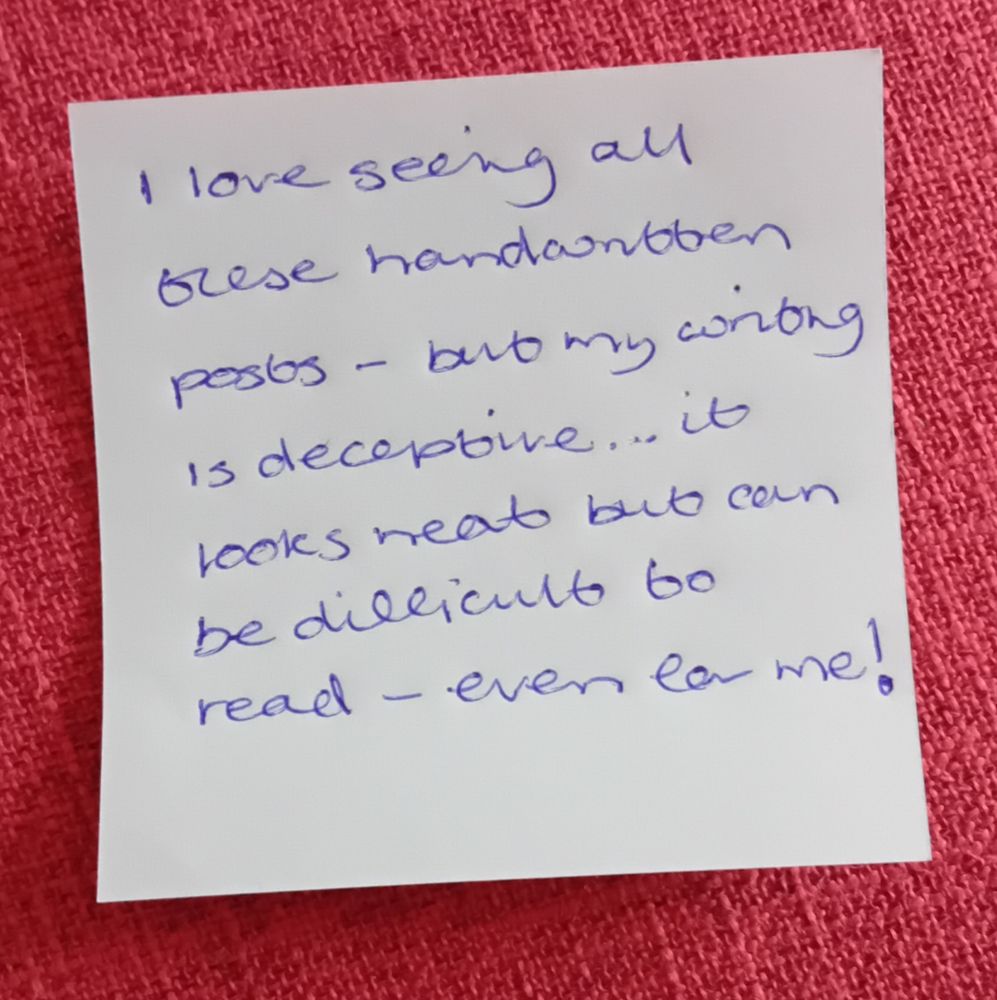 I love seeing all
these handwritten
posts - but my writing
is deceptive... it
looks neat but can
be difficult to
read - even for me!